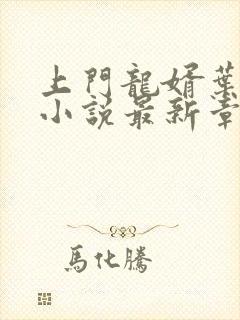 上門龍婿葉
小說最新章
馬化騰